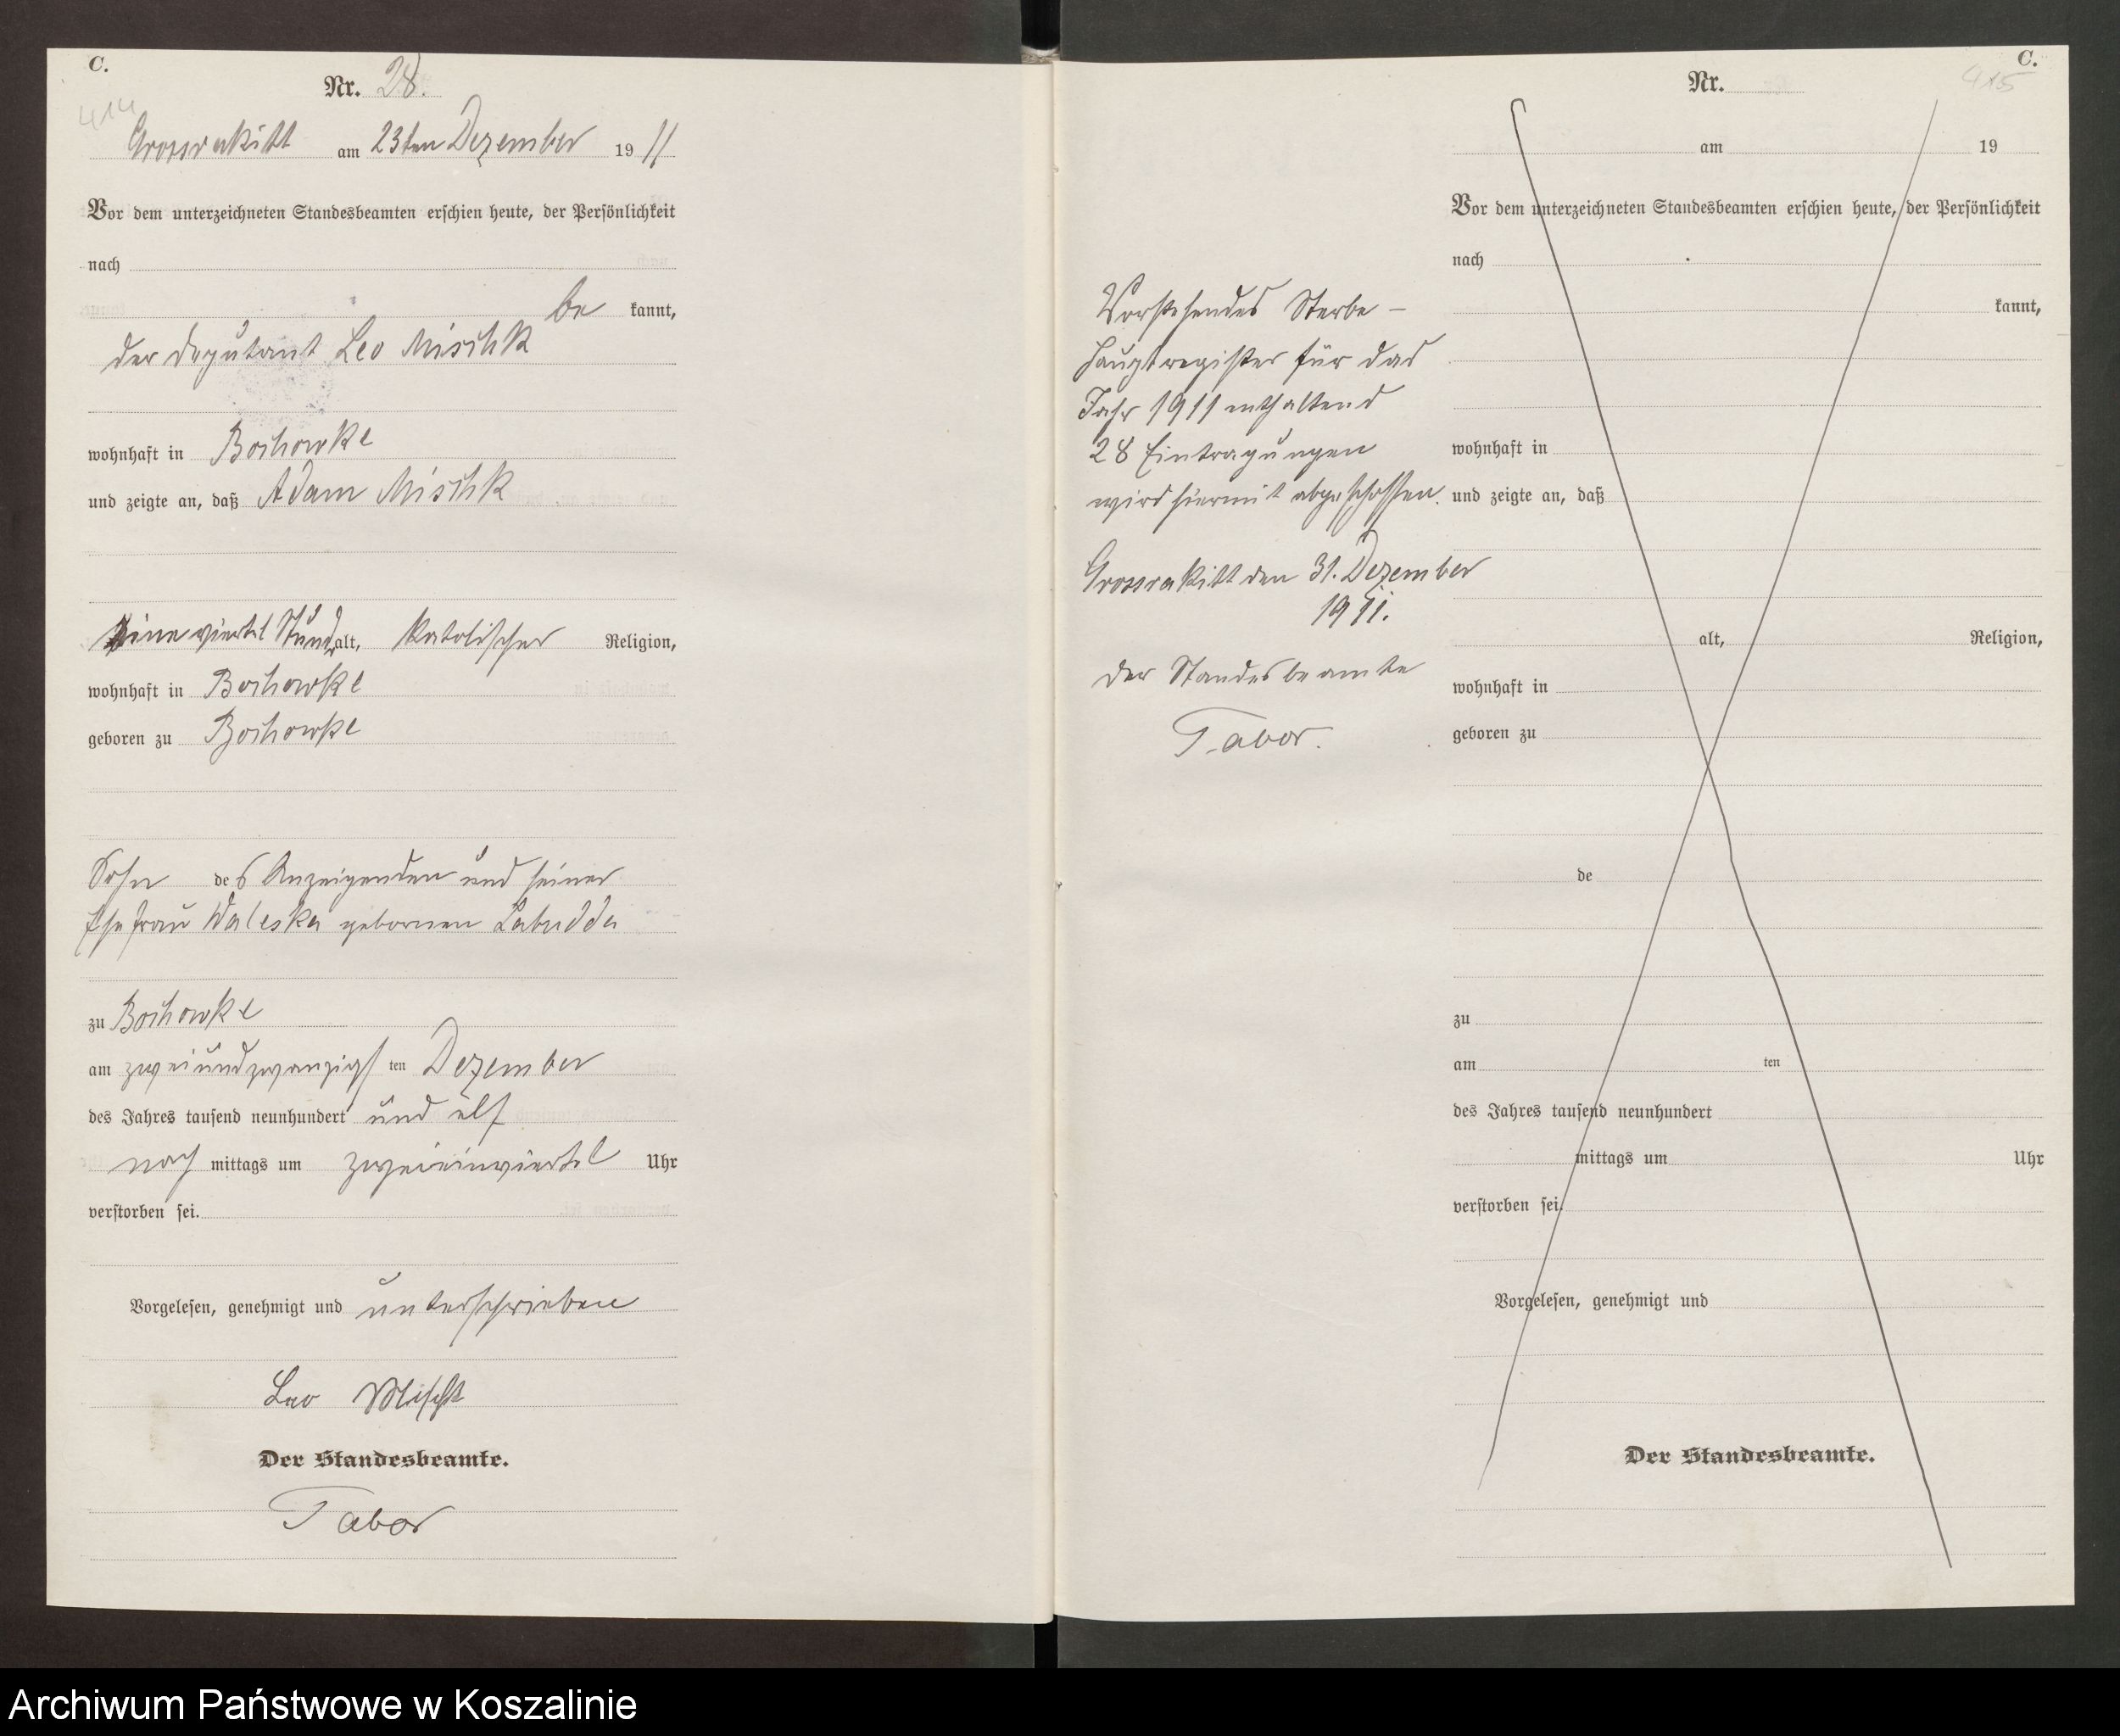 C.
414
Nr. 28.
Grossrakitt am 23ten Dezember 19 11
Vor dem unterzeichneten Standesbeamten erschien heute, der Persönlichkeit
nach
be kannt,
der Deputant Leo Mischk
wohnhaft in Bochowke
und zeigte an, daß Adam Mischk
eine viertel Stunde alt, katolischer Religion,
wohnhaft in Bochowke
geboren zu Bochowke
Sohn des Anzeigenden und seiner
Ehefrau Waleska gebornen Labudda
zu Bochowke
am zweiundzwanzigsten Dezember
des Jahres tausend neunhundert und elf
nach mittags um zweieinviertel Uhr
verstorben sei.
Vorgelesen, genehmigt und unterschrieben
Leo Mischk
Der Standesbeamte.
Tabor
Vorstehendes Sterbe-
hauptregister für das
Jahr 1911 enthaltend
28 Eintragungen
wird hiermit abgeschlossen.
Grossrakitt den 31. Dezember
1911.
Der Standesbeamte
Tabor.
C.
415
Nr.
am 19
Vor dem unterzeichneten Standesbeamten erschien heute, der Persönlichkeit
nach
kannt,
wohnhaft in
und zeigte an, daß
alt, Religion,
wohnhaft in
geboren zu
de
zu
am ten
des Jahres tausend neunhundert
mittags um Uhr
verstorben sei.
Vorgelesen, genehmigt und
Der Standesbeamte.
Archiwum Państwowe w Koszalinie